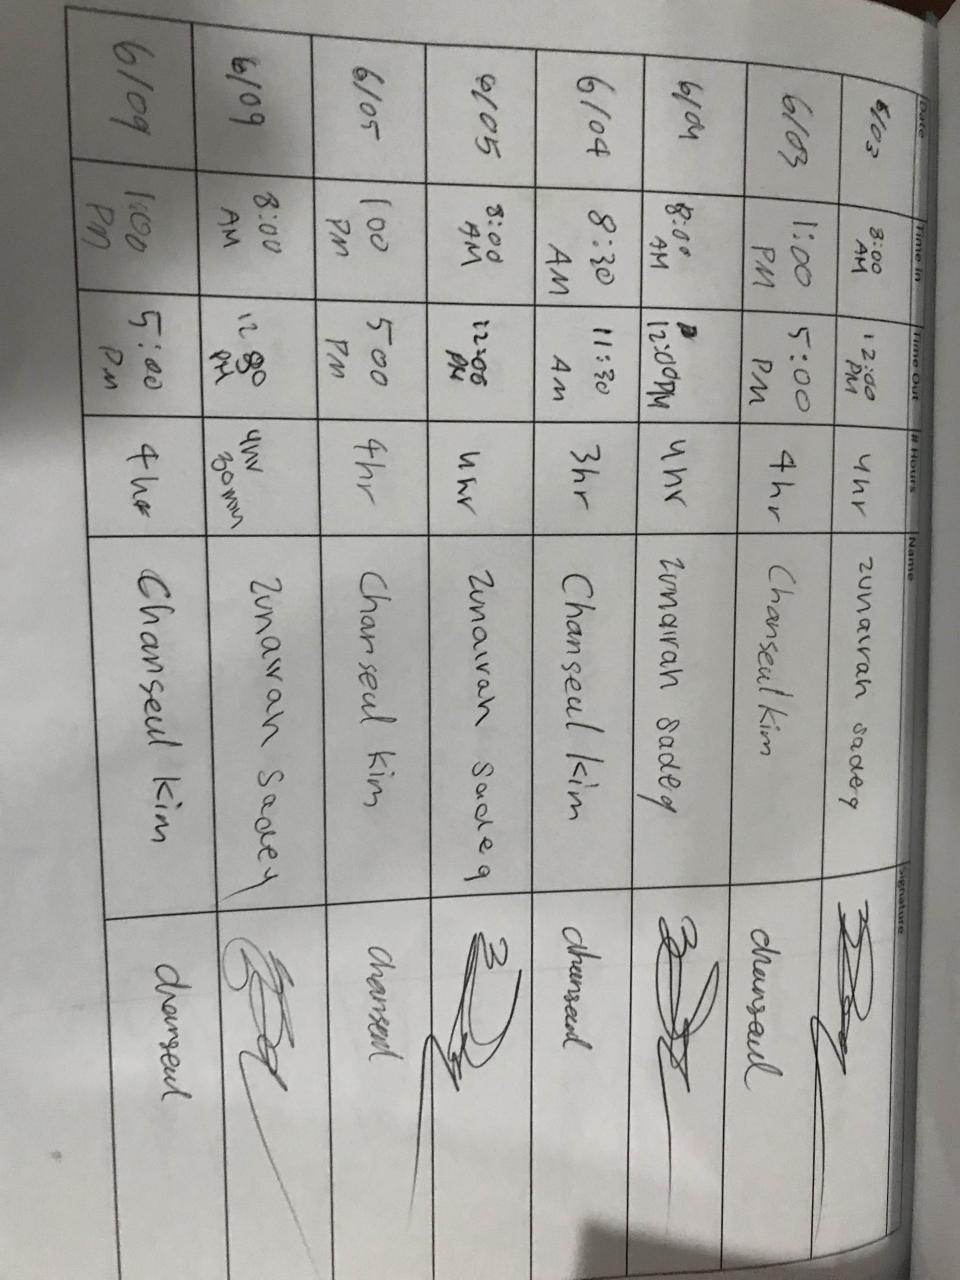 Date Time In Time Out # Hours Name Signature
6/03 8:00 AM 12:00 PM 4hr zunairah sadeq
6/03 1:00 PM 5:00 PM 4hr Chanseul kim chanseul
6/04 8:00 AM 12:00PM 4hr zunairah sadeq
6/04 8:30 AM 11:30 AM 3hr Chanseul kim chanseul
6/05 8:00 AM 12:00 PM 4hr zunairah sadeq
6/05 1:00 PM 5:00 PM 4hr Chanseul kim chanseul
6/09 8:00 AM 12 PM 4hr 30min zunairah sadeq
6/09 1:00 PM 5:00 PM 4hr Chanseul kim chanseul